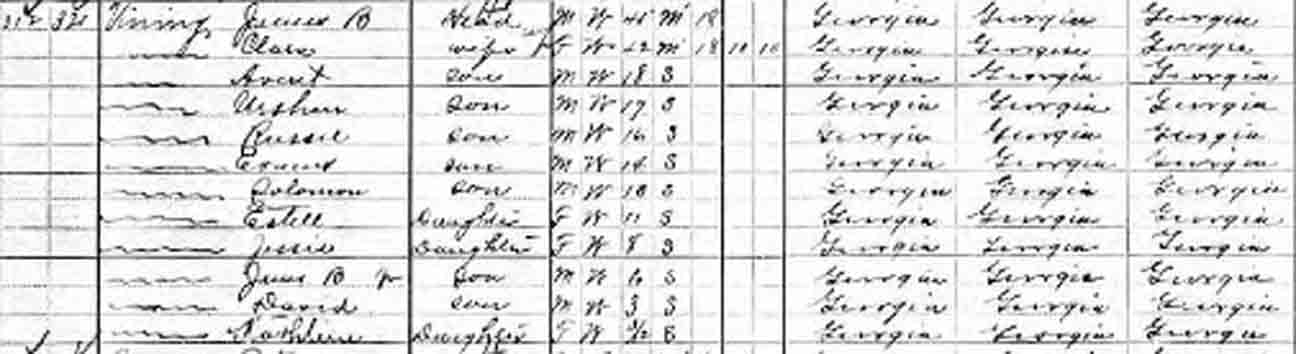 Vining James B Head M W 45 M 18 Georgia Georgia Georgia
Clara wife F W 42 M 18 10 10 Georgia Georgia Georgia
Averit son M W 18 S Georgia Georgia Georgia
Arthur son M W 17 S Georgia Georgia Georgia
Russel son M W 16 S Georgia Georgia Georgia
Ernest son M W 14 S Georgia Georgia Georgia
Solomon son M W S Georgia Georgia Georgia
Estell Daughter F W 11 S Georgia Georgia Georgia
Jessie Daughter F W 8 S Georgia Georgia Georgia
James B Jr son M W 6 S Georgia Georgia Georgia
David son M W 3 S Georgia Georgia Georgia
Daughter F W S Georgia Georgia Georgia